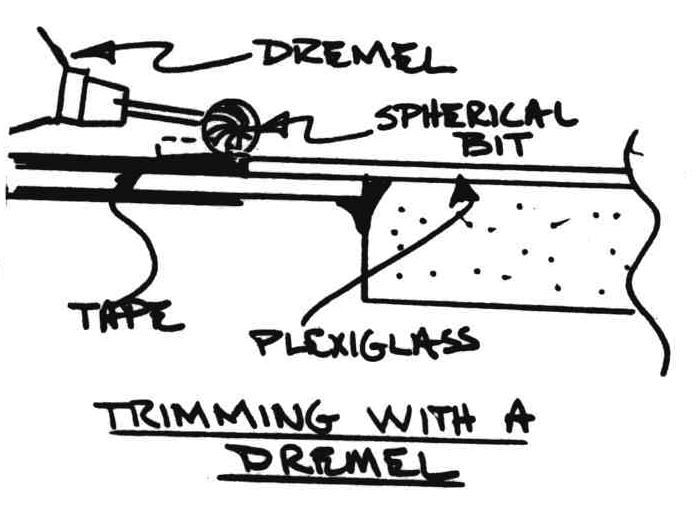 DREMEL
SPHERICAL
BIT
TAPE
PLEXIGLASS
TRIMMING WITH A
DREMEL